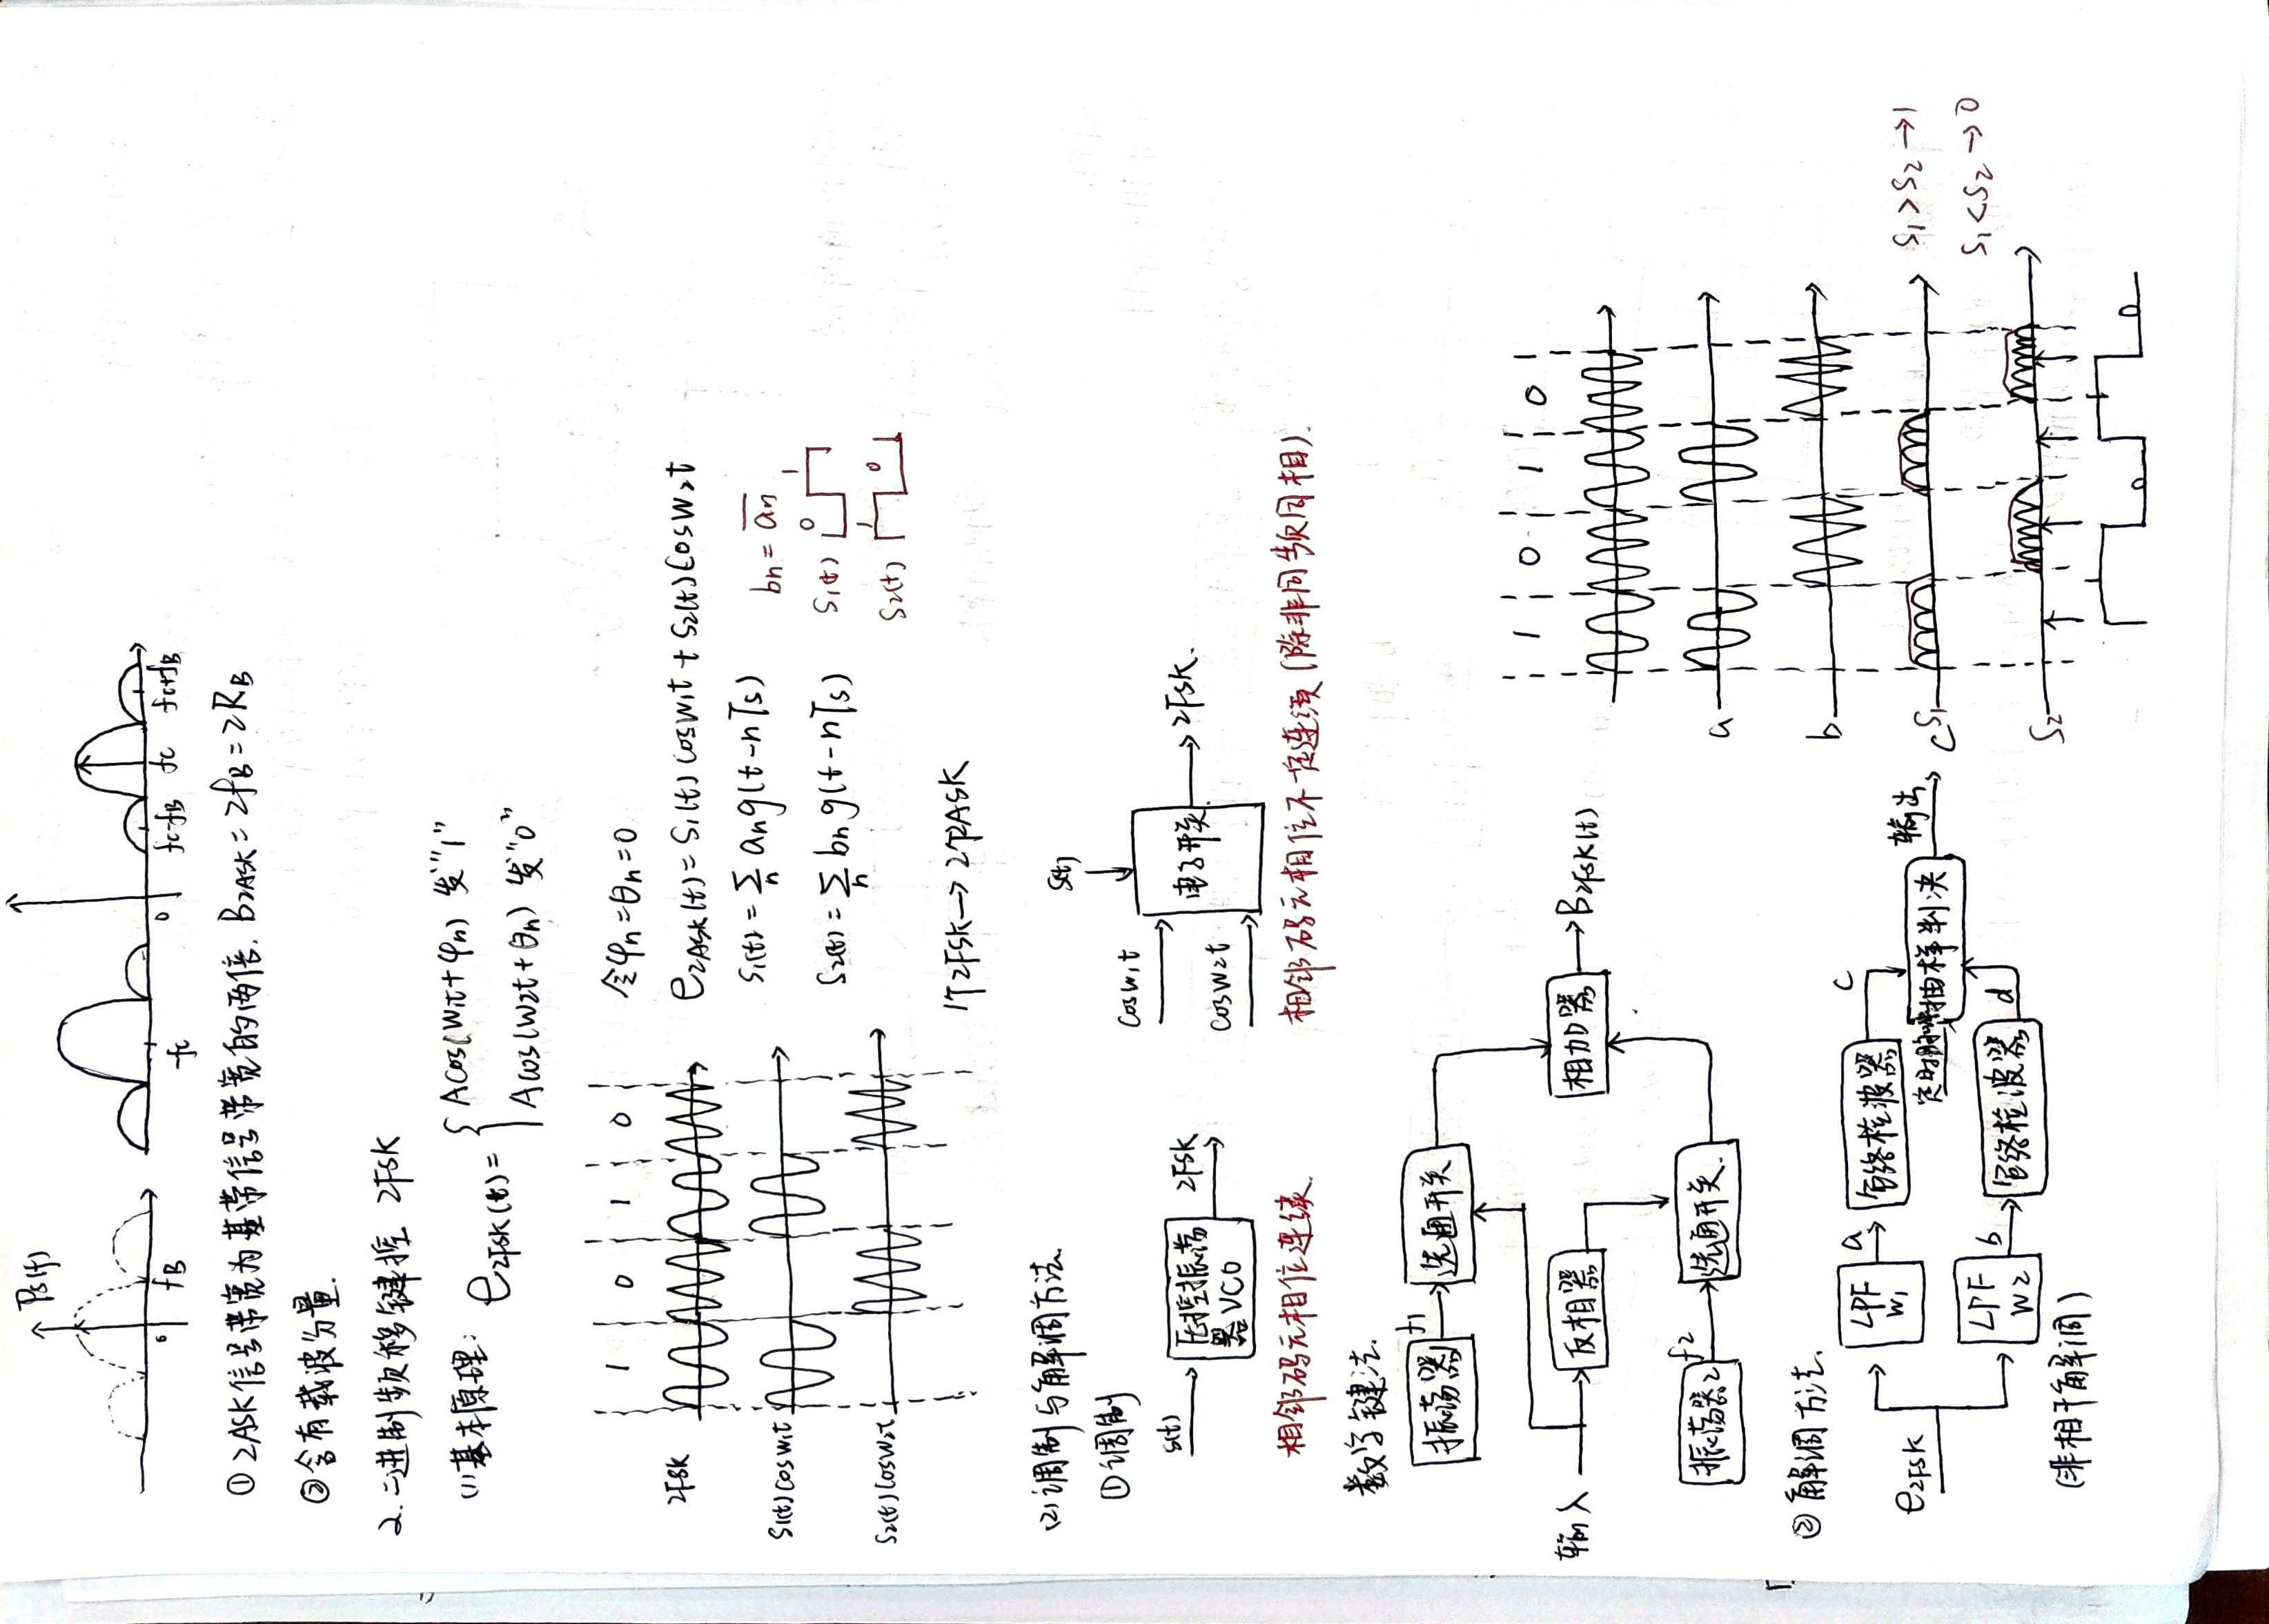 Ps(f)
0 fB -fc 0 fc-fB fc fc+fB
① 2ASK信号带宽为基带信号带宽的两倍. B2ASK = 2fB = 2RB
② 含有载波分量.
2. 二进制频移键控 2FSK
(1) 基本原理: e2FSK(t) = { Acos(w1t+φn) 发"1"
Acos(w2t+θn) 发"0"
1 0 1 0
2FSK
S1(t)cosw1t
S2(t)cosw2t
令φn=θn=0
e2ASK(t) = S1(t)cosw1t + S2(t)cosw2t
S1(t) = Σn an g(t-nTs)
S2(t) = Σn bn g(t-nTs)
bn = \overline{an}
S1(t) 0 1
S2(t) 1 0
1个2FSK → 2个2ASK
(2) 调制与解调方法.
① 调制
s(t) 压控振荡器VCO 2FSK
相邻码元相位连续.
s(t)
cosw1t
cosw2t
电子开关 2FSK.
相邻码元相位不一定连续 (除非同频同相).
数字键法.
振荡器1 f1 选通开关
输入 反相器 相加器 B2FSK(t)
振荡器2 f2 选通开关.
② 解调方法.
e2FSK
LPF w1 a 包络检波器 c
定时脉冲 抽样判决 输出
LPF w2 b 包络检波器 d
(非相干解调)
1 0 1 0
a
b
c S1
S2
S1>S2→1
S1<S2→0
1 0 1 0